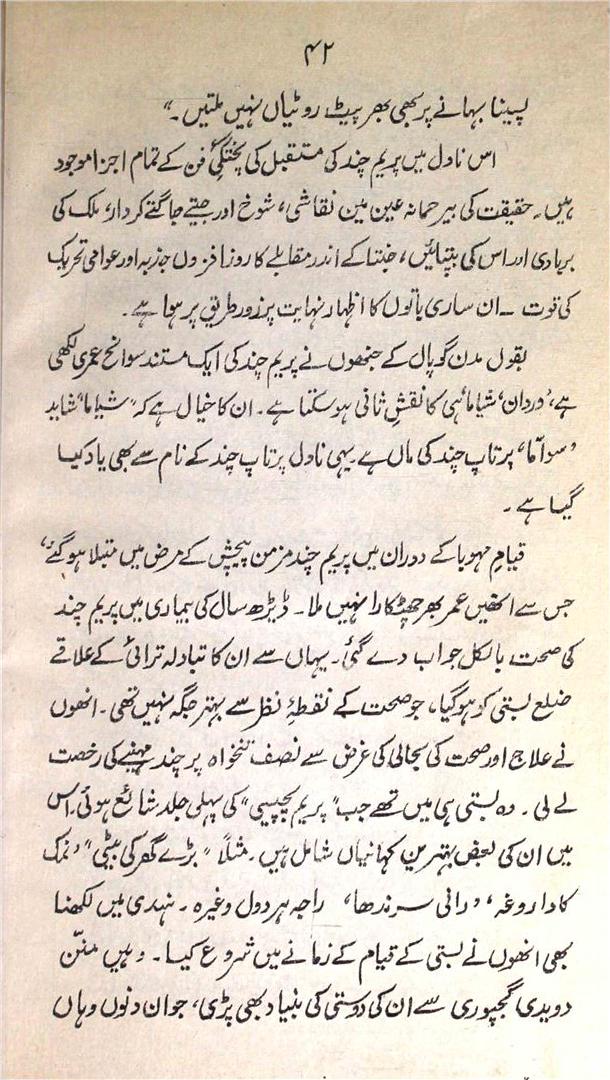 ۴۲
پسینا بہانے پر بھی بھر پیٹ روٹیاں نہیں ملتیں۔"
اس ناول میں پریم چند کی مستقبل کی پختگیٔ فن کے تمام اجزا موجود
ہیں۔ حقیقت کی بیرحمانہ عین مین نقاشی، شوخ اور جیتے جاگتے کردار، ملک کی
بربادی اور اس کی بپتائیں، جنتا کے اندر مقابلے کا روز افزوں جذبہ اور عوامی تحریک
کی قوت ــ ان ساری باتوں کا اظہار نہایت پرزور طریق پر ہوا ہے۔
بقول مدن گوپال کے جنھوں نے پریم چند کی ایک مستند سوانح عمری لکھی
ہے، 'وردان' شیاما' ہی کا نقش ثانی ہو سکتا ہے۔ ان کا خیال ہے کہ "شیاما" شاید
'سوآما' پرتاپ چند کی ماں ہے۔ یہی ناول پرتاپ چند کے نام سے بھی یاد کیا
گیا ہے۔
قیام مہوبا کے دوران میں پریم چند مزمن پیچش کے مرض میں مبتلا ہو گئے،
جس سے انھیں عمر بھر چھٹکارا نہیں ملا۔ ڈیڑھ سال کی بیماری میں پریم چند
کی صحت بالکل جواب دے گئی۔ یہاں سے ان کا تبادلہ ترائی کے علاقے
ضلع بستی کو ہو گیا، جو صحت کے نقطۂ نظر سے بہتر جگہ نہیں تھی۔ انھوں
نے علاج اور صحت کی بحالی کی غرض سے نصف تنخواہ پر چند مہینے کی رخصت
لے لی۔ وہ بستی ہی میں تھے جب "پریم پچیسی" کی پہلی جلد شائع ہوئی۔ اس
میں ان کی بعض بہترین کہانیاں شامل ہیں۔ مثلاً "بڑے گھر کی بیٹی" 'نمک
کا داروغہ' 'رانی سرندھا' راجہ ہردول وغیرہ۔ ہندی میں لکھنا
بھی انھوں نے بستی کے قیام کے زمانے میں شروع کیا۔ وہیں منّن
دویدی گجپوری سے ان کی دوستی کی بنیاد بھی پڑی، جو ان دنوں وہاں